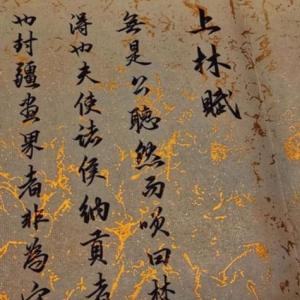 上林賦
無是公聽然而咲曰
得也夫使諸侯納貢者
也封疆畫界者非為